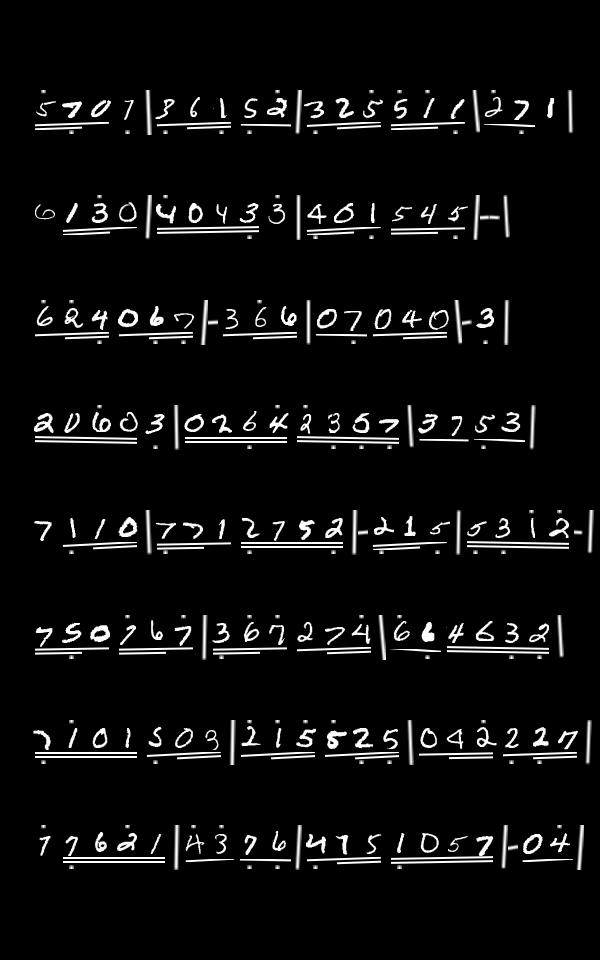 5 7 0 7 | 3 6 1 5 2 | 3 2 5 5 1 1 | 2 7 1 |
6 1 3 0 | 4 0 4 3 3 | 4 0 1 5 4 5 | - - |
6 2 4 0 6 7 | - 3 6 6 | 0 7 0 4 0 | - 3 |
2 0 6 0 3 | 0 2 6 4 2 3 5 7 | 3 7 5 3 |
7 1 1 0 | 7 7 1 2 7 5 2 | - 2 1 5 | 5 3 1 2 - |
7 5 0 7 6 7 | 3 6 7 2 7 4 | 6 6 4 6 3 2 |
7 1 0 1 5 0 3 | 2 1 5 5 2 5 | 0 4 2 2 2 7 |
7 7 6 2 1 | 4 3 7 6 | 4 7 5 1 0 5 7 | - 0 4 |